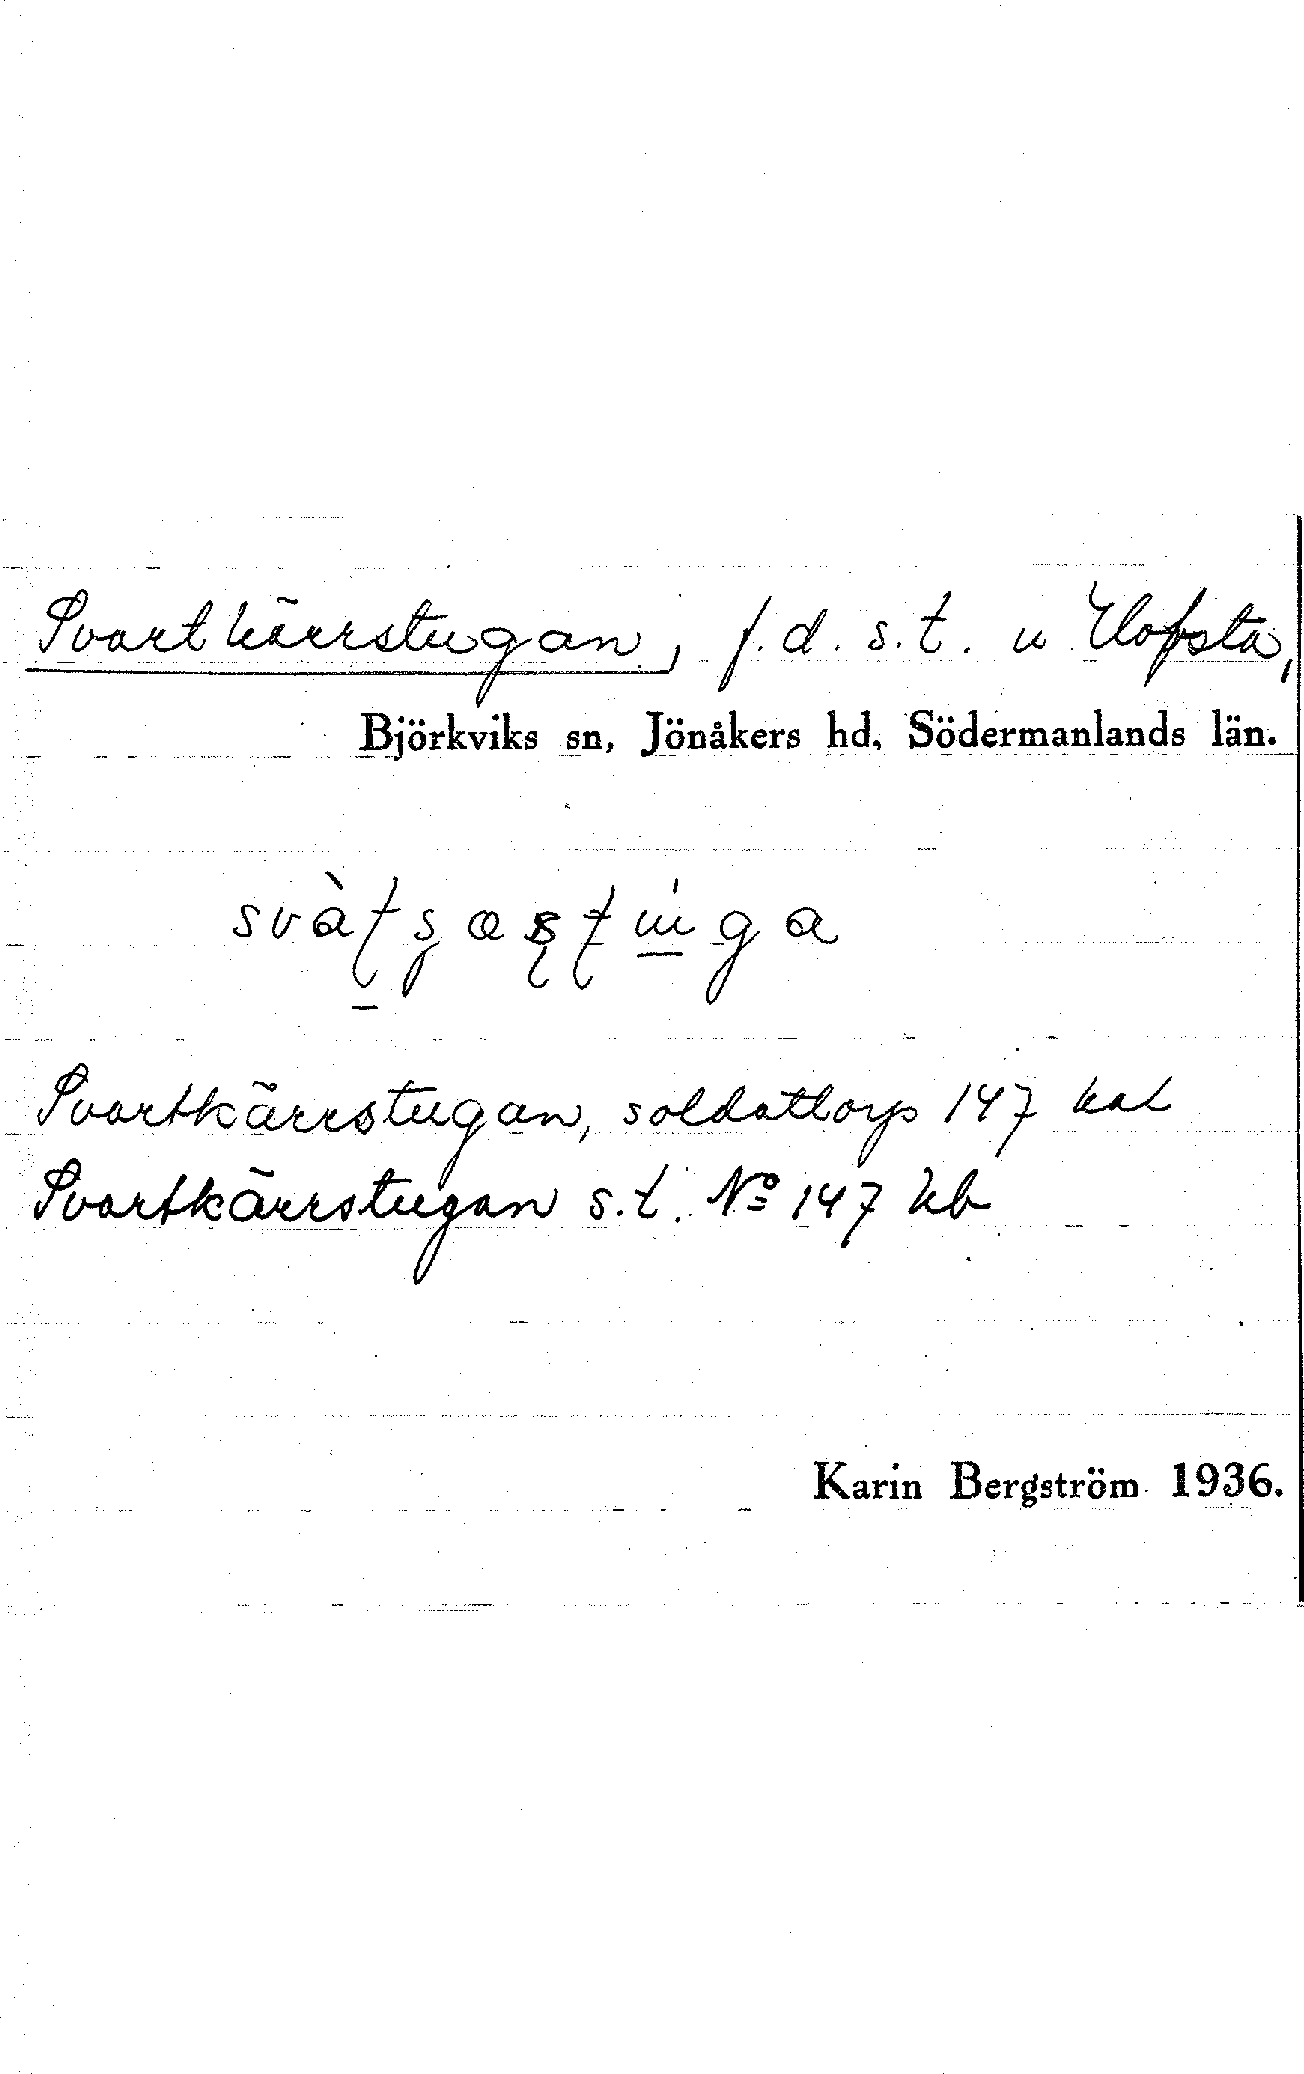 Svartkärrstugan, f.d. s.t. u. Elofsta,
Björkviks sn, Jönåkers hd, Södermanlands län.
Svartkärrstugan, soldattorp 147 kat
Svartkärrstugan s.t. Nº 147 kb
Karin Bergström 1936.